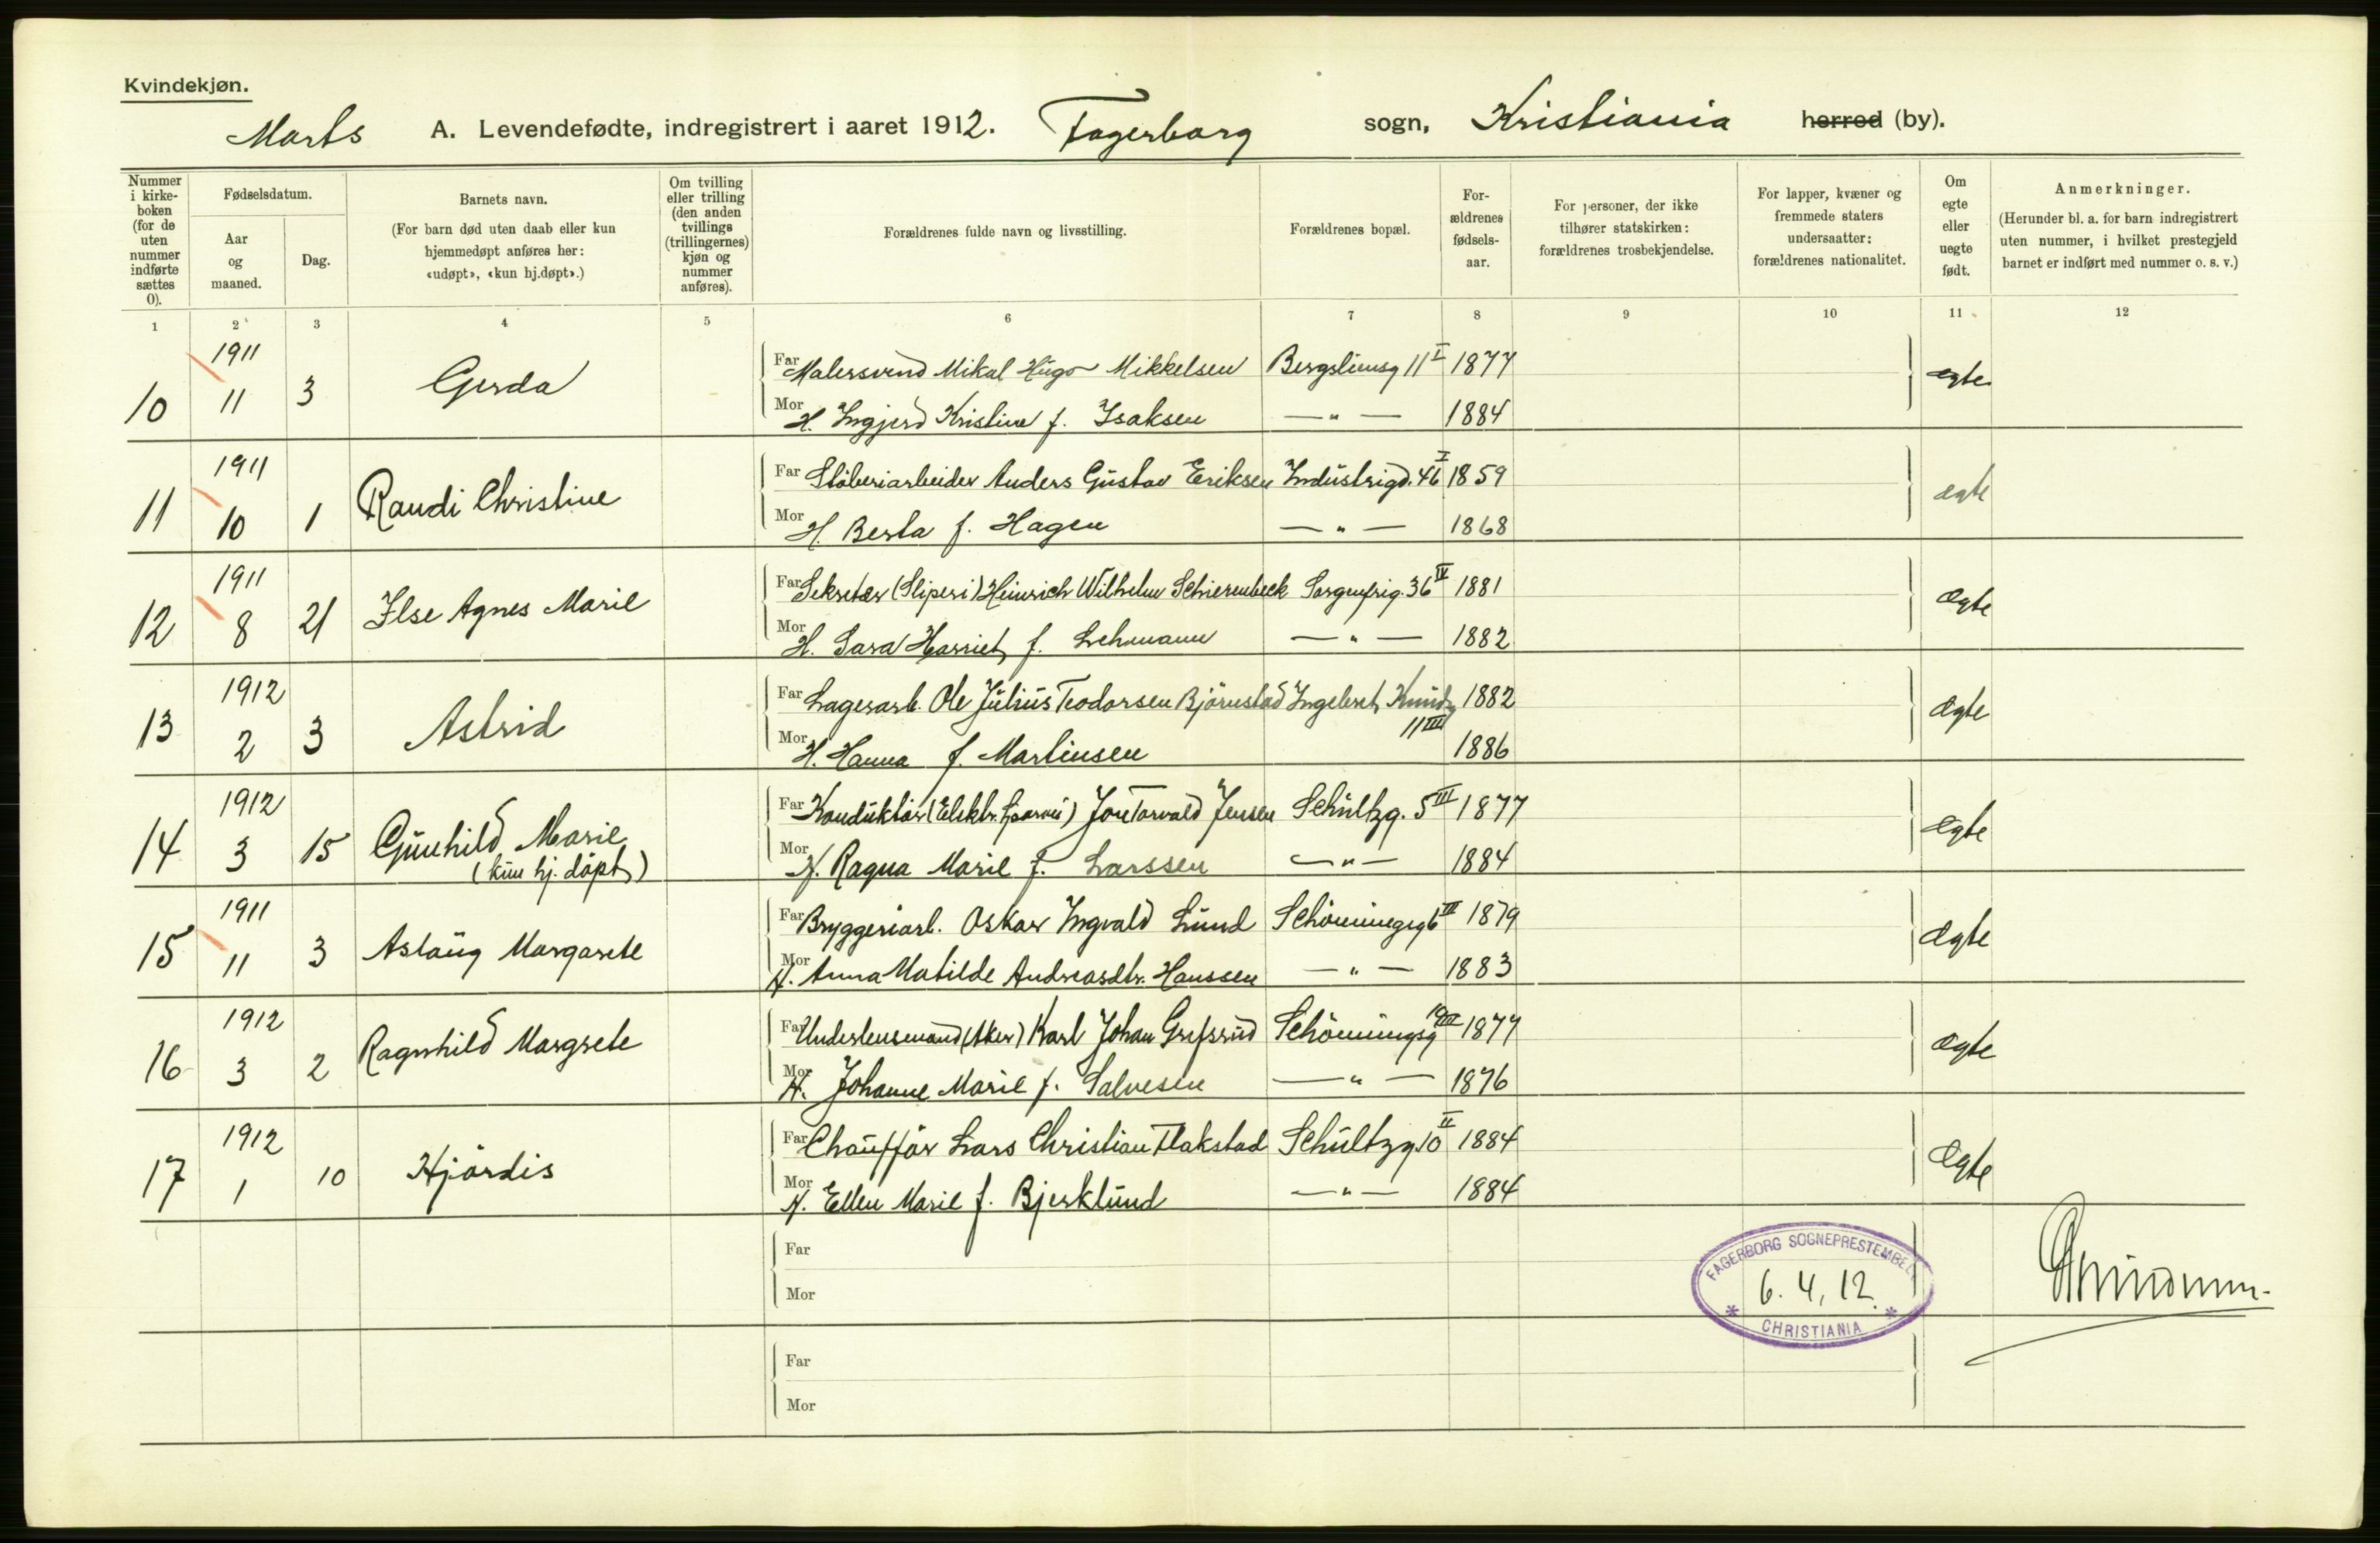 Kvindekjøn.
Marts A. Levendefødte, indregistrert i aaret 1912. Fagerborg sogn, Kristiania herred (by).
Nummer i kirkeboken (for de uten nummer indførte sættes 0).
Fødselsdatum.
Aar og maaned.
Dag.
Barnets navn.
(For barn død uten daab eller kun hjemmedøpt anføres her: «udøpt», «kun hj.døpt».)
Om tvilling eller trilling (den anden tvillings (trillingernes) kjøn og nummer anføres).
Forældrenes fulde navn og livsstilling.
Forældrenes bopæl.
For-ældrenes fødsels-aar.
For personer, der ikke tilhører statskirken: forældrenes trosbekjendelse.
For lapper, kvæner og fremmede staters undersaatter: forældrenes nationalitet.
Om egte eller uegte født.
Anmerkninger.
(Herunder bl. a. for barn indregistrert uten nummer, i hvilket prestegjeld barnet er indført med nummer o. s. v.)
1 2 3 4 5 6 7 8 9 10 11 12
10 1911 11 3 Gerda Far Malersvend Mikal Hugo Mikkelsen Bergsliensg 11 I 1877 egte
Mor H. Ingjerd Kristine f. Isaksen — " — 1884
11 1911 10 1 Randi Christine Far Støberiarbeider Anders Gustav Eriksen Industrigd. 46 I 1859 egte
Mor H. Berta f. Hagen — " — 1868
12 1911 8 21 Ilse Agnes Marie Far Sekretær (Sliperi) Heinrich Wilhelm Schierenbeck Sorgenfrig. 36 IV 1881 egte
Mor H. Sara Harriet f. Lehmann — " — 1882
13 1912 2 3 Astrid Far Lagerarb. Ole Julius Teodorsen Bjørnstad Ingebret Knudg 11 III 1882 egte
Mor H. Hanna f. Martinsen 1886
14 1912 3 15 Gunhild Marie Far Konduktør (Elektr. Sporvei) Jon Torvald Jensen Schultzg. 5 III 1877 egte
(kun hj. døpt) Mor H. Ragna Marie f. Larssen — " — 1884
15 1911 11 3 Aslaug Margarete Far Bryggeriarb. Oskar Ingvald Lund Schøningsg 6 III 1879 egte
Mor H. Anna Matilde Andreasdtr. Hanssen — " — 1883
16 1912 3 2 Ragnhild Margrete Far Underlensmand (Aker) Karl Johan Grefsrud Schøningsg 1877 egte
Mor H. Johanne Marie f. Salvesen — " — 1876
17 1912 1 10 Hjørdis Far Chauffør Lars Christian Flakstad Schultzg. 10 II 1884 egte
Mor H. Ellen Marie f. Bjerklund — " — 1884
Far
Mor
FAGERBORG SOGNEPRESTEMBE
6. 4, 12.
* CHRISTIANIA *
Far
Mor